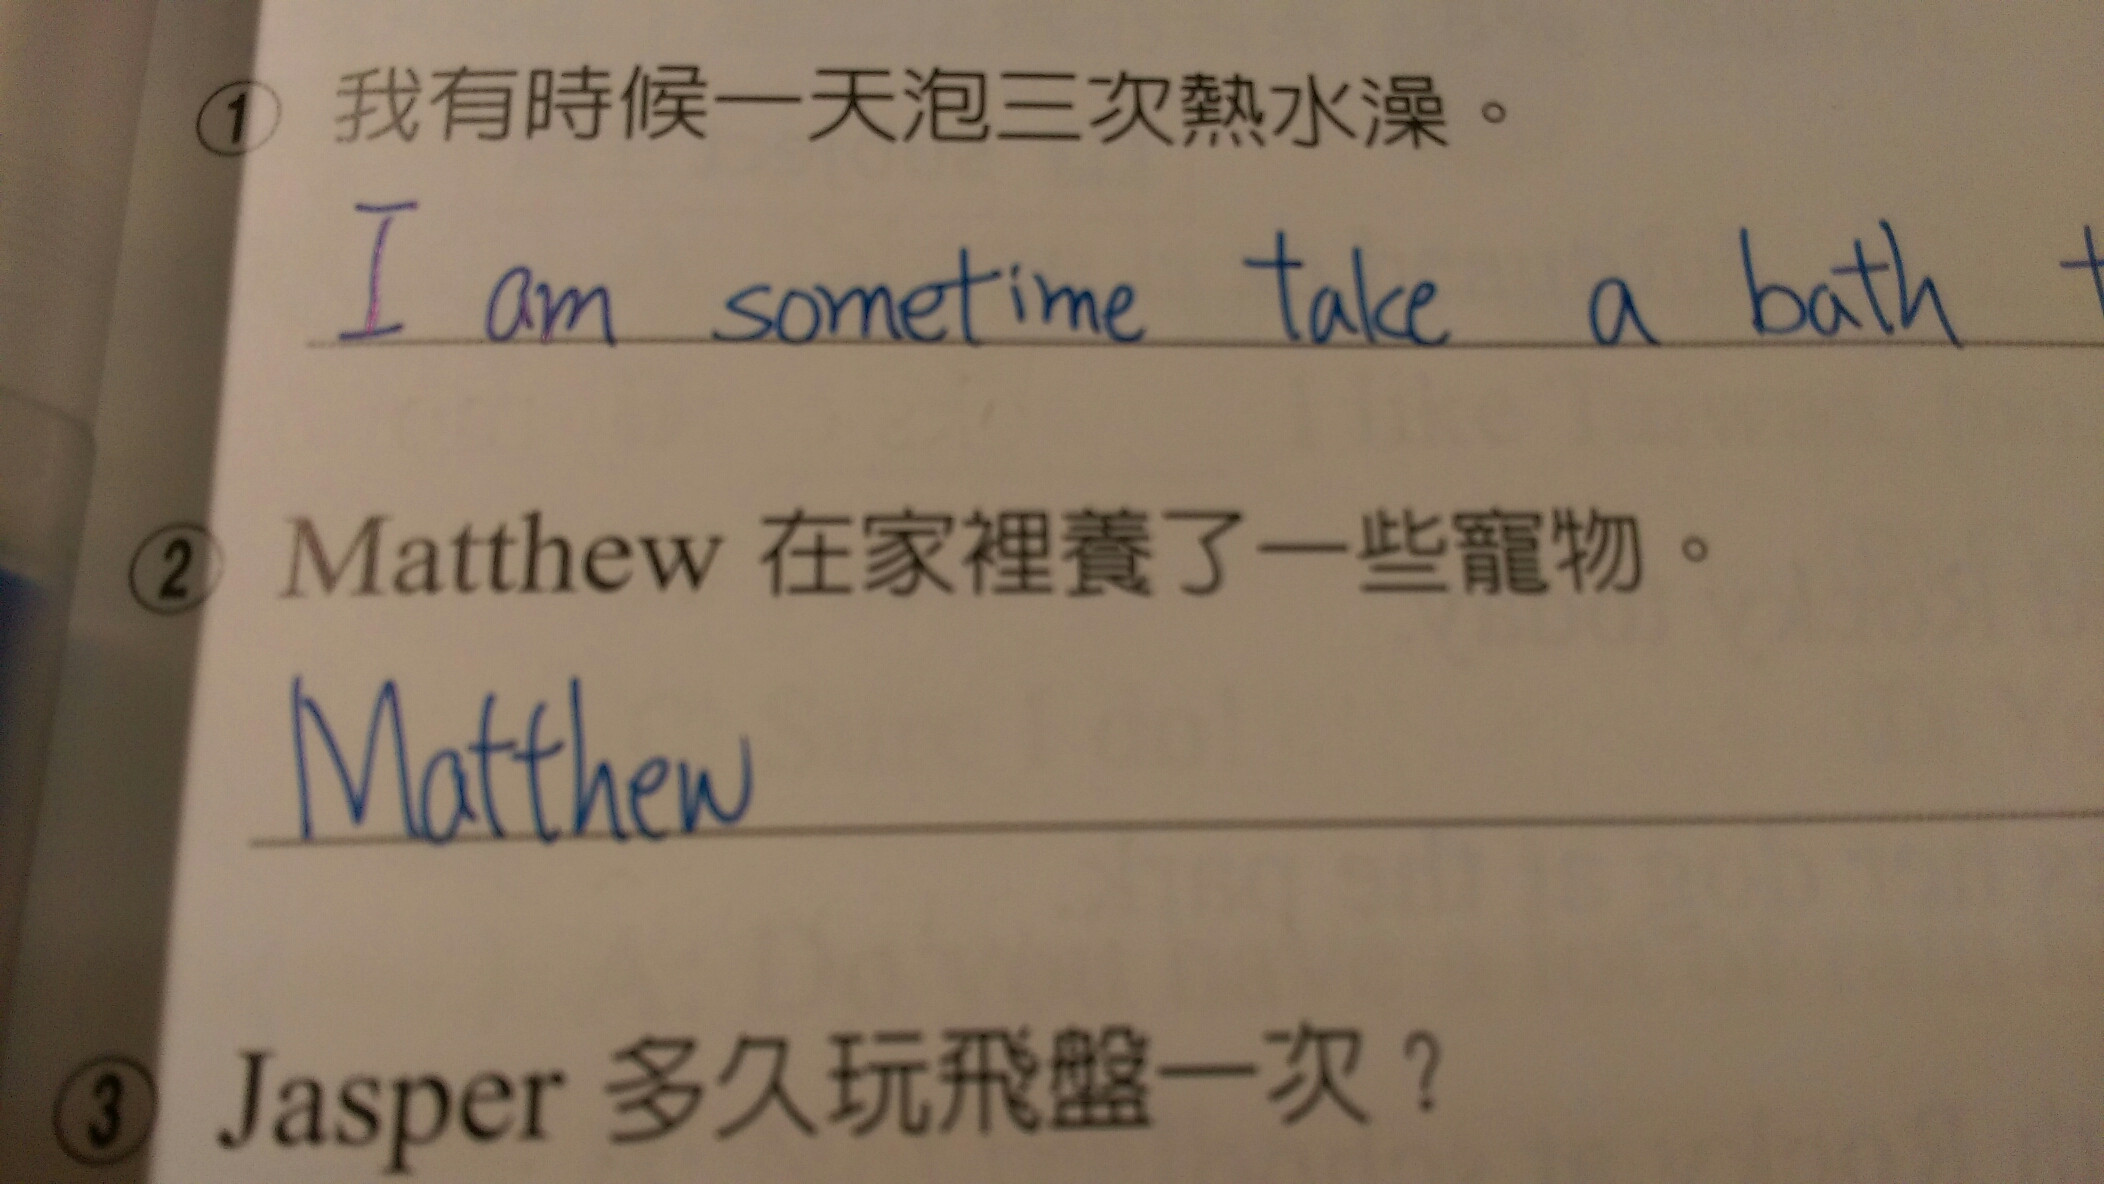 ① 我有時候一天泡三次熱水澡。
I am sometime take a bath t
② Matthew 在家裡養了一些寵物。
Matthew
③ Jasper 多久玩飛盤一次？